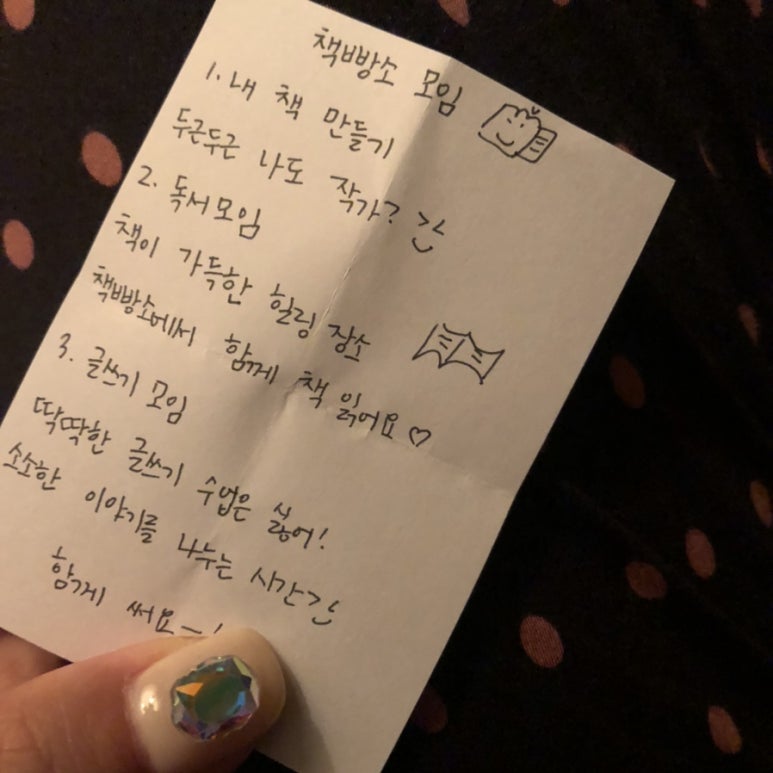 책빵소 모임
1. 내 책 만들기
두근두근 나도 작가?
2. 독서모임
책이 가득한 힐링 장소
책빵소에서 함께 책 읽어요♡
3. 글쓰기 모임
딱딱한 글쓰기 수업은 싫어!
소소한 이야기를 나누는 시간
함께 써요~!